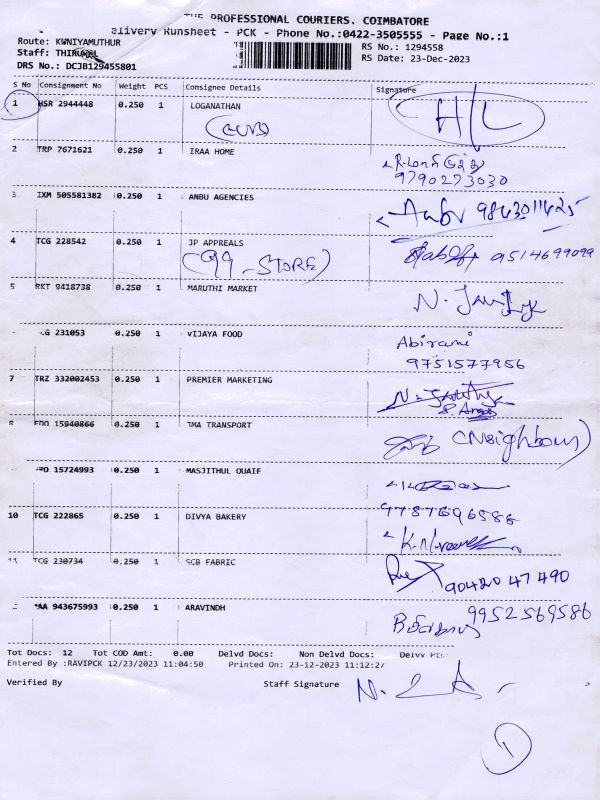 THE PROFESSIONAL COURIERS. COIMBATORE
elivery Runsheet - PCK - Phone No.:0422-3505555 - Page No.:1
Route: KUNIYAMUTHUR
RS No.: 1294558
Staff: THIRUMAL
RS Date: 23-Dec-2023
DRS No.: DCJB129455801
S No Consignment No Weight PCS Consignee Details Signature
1 HSR 2944448 0.250 1 LOGANATHAN H/L
2 TRP 7671621 0.250 1 IRAA HOME
9790273030
3 IXM 505581382 0.250 1 ANBU AGENCIES Anbu 9843011425
4 TCG 228542 0.250 1 JP APPREALS 9514699099
(99 - STORE)
5 RKT 9418738 0.250 1 MARUTHI MARKET
TCG 231053 0.250 1 VIJAYA FOOD Abirami
9751577956
7 TRZ 332002453 0.250 1 PREMIER MARKETING
8 EDO 15940866 0.250 1 JMA TRANSPORT (Neighbour)
15724993 0.250 1 MASJITHUL QUAIF
9787696588
10 TCG 222865 0.250 1 DIVYA BAKERY
11 TCG 230734 0.250 1 SCB FABRIC 90420 47490
MAA 943675993 0.250 1 ARAVINDH 9952569586
Tot Docs: 12 Tot COD Amt: 0.00 Delvd Docs: Non Delvd Docs: Delvv
Entered By :RAVIPCK 12/23/2023 11:04:50 Printed On: 23-12-2023 11:12:27
Verified By Staff Signature
1